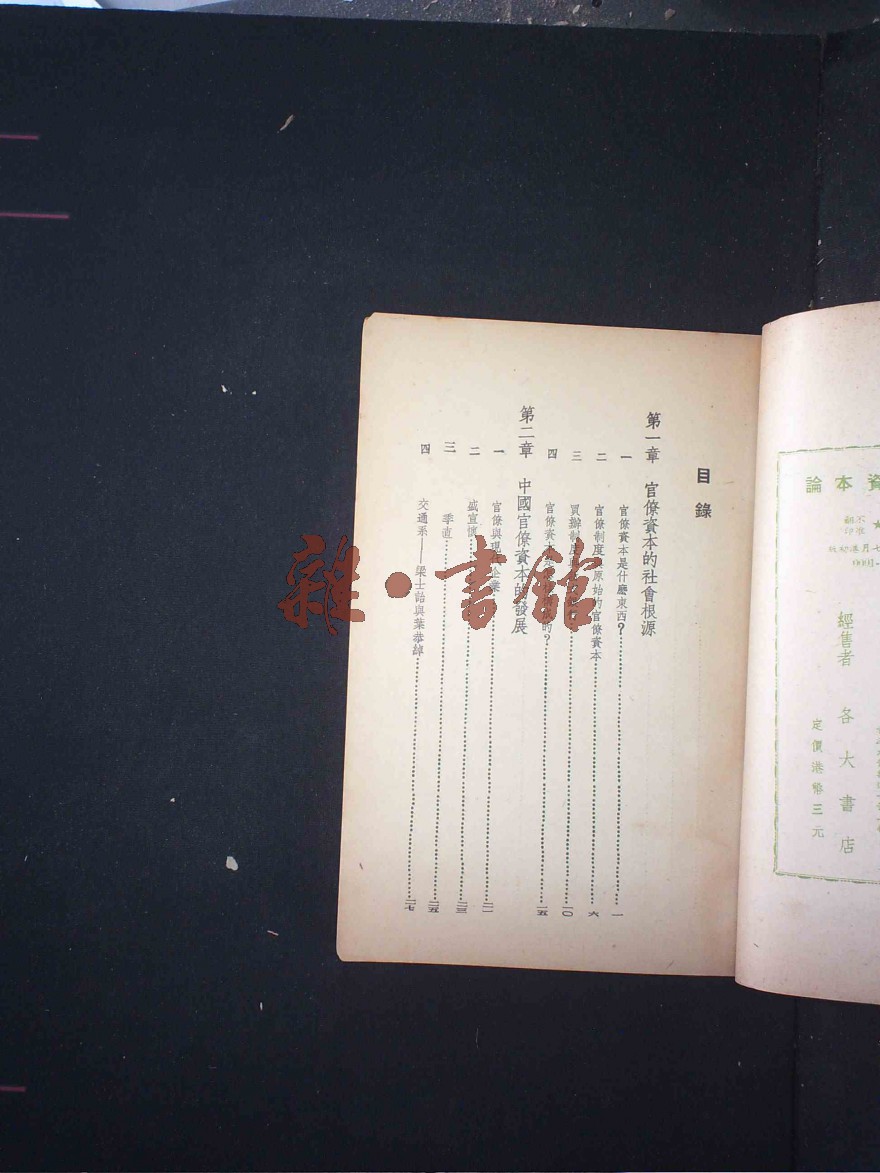 論本資
不准
翻印
★
七月港初版
0001-
經售者 各大書店
定價港幣三元
目錄
第一章 官僚資本的社會根源
一 官僚資本是什麼東西？ 一
二 官僚制度與原始的官僚資本 六
三 買辦制度與 一〇
四 官僚資本是 的？ 一五
第二章 中國官僚資本的發展
一 官僚與現代企業 二一
二 盛宣懷 二三
三 季直 二五
四 交通系——梁士詒與葉恭綽 二七
雜·書館